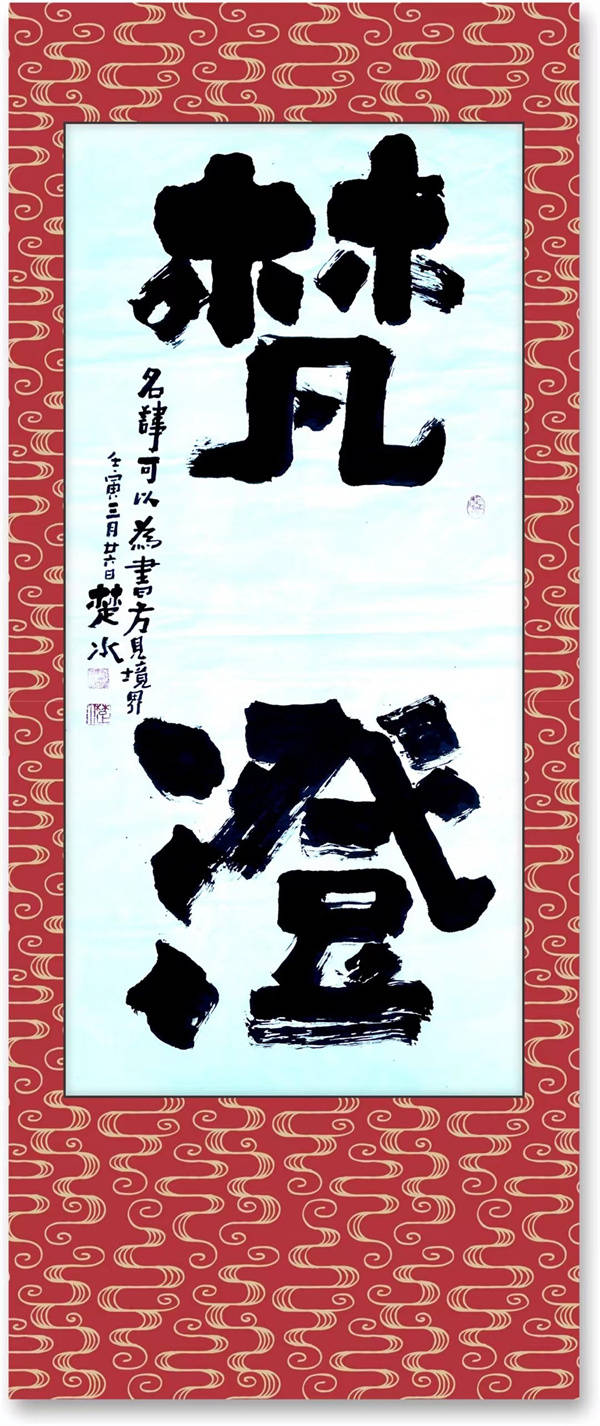 梵澄
名諱可以為書方見境界
壬寅三月廿六日楚水